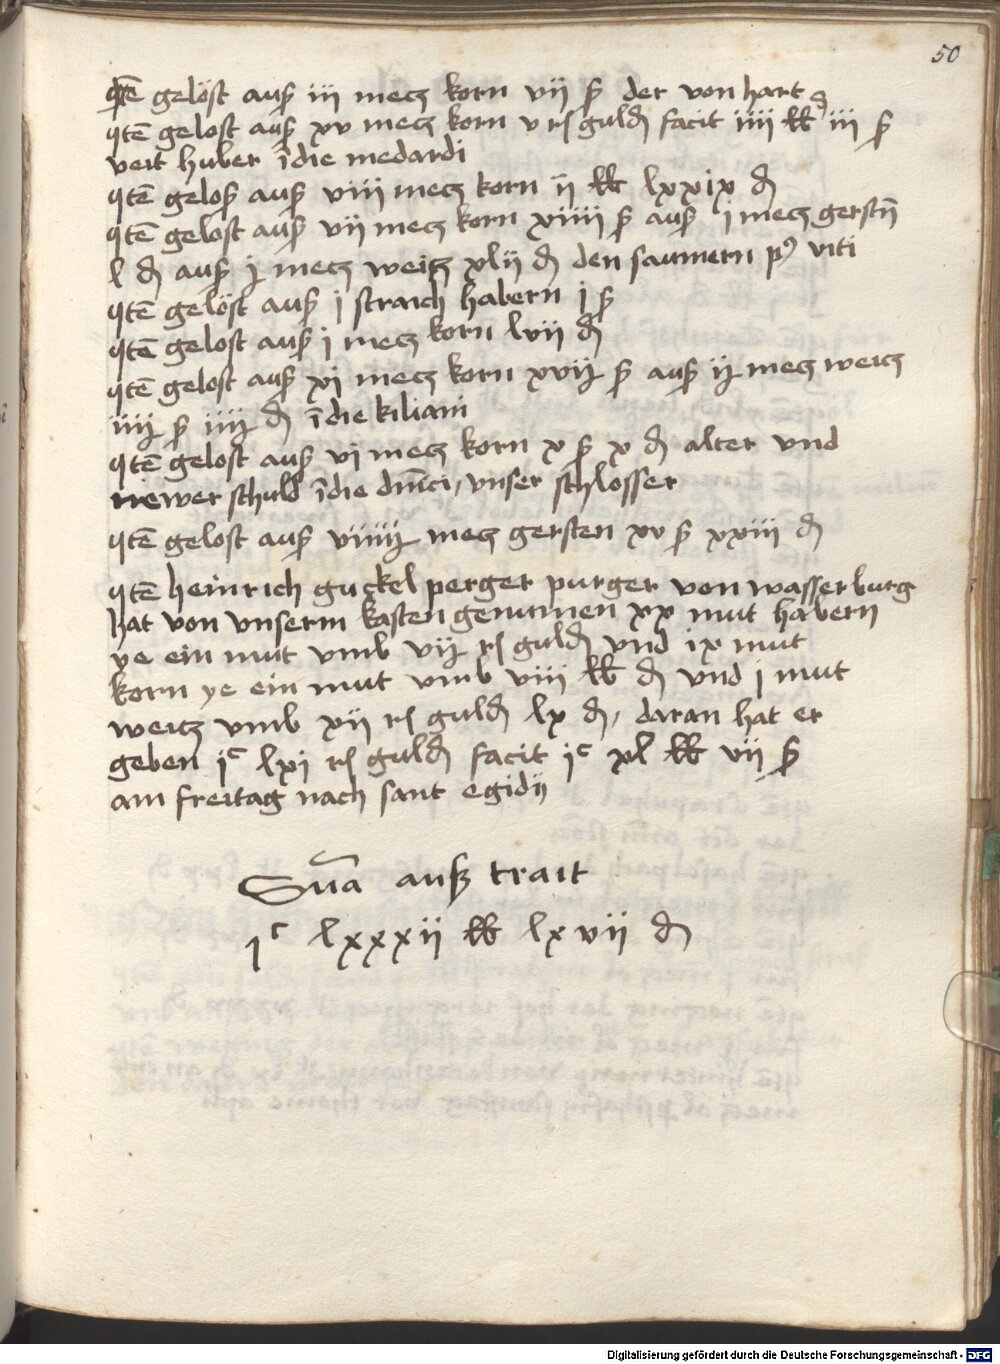 50
qtē gelöst auß iii mecz korn vii ß der von hart
qtē gelost auß xv mecz korn v rh guld facit iiii lb iii ß
veit huber ī die medardi
qtē gelost auß viii mecz korn ii lb lxxix d
qtē gelost auß vii mecz korn xiiii ß auß i mecz gerstn̄
l d auß j mecz weitz xlij d den saumern p9 viti
qtē gelöst auß j straich habern j ß
qtē gelost auß j mecz korn lvii d
qtē gelost auß xi mecz korn xvij ß auß ij mecz weicz
iiij ß iiij d ī die kiliani
qtē gelost auß vi mecz korn x ß x d alter vnd
newer schuld ī die dn̄ici, vnser schlosser
qtē gelost auß viiij mecz gersten xv ß xxiii d
qtē heinrich guckelperger purger von wasserburg
hat von vnserm kasten genumen xx mut habern
ye ein mut vmb vij rh guld vnd ix mut
korn ye ein mut vmb viii lb d vnd j mut
weicz vmb xii rh guld lx d, daran hat er
geben jc lxi rh guld facit jc xl lb vii ß
am freitag nach sant egidij
Sūa auß trait
jc lxxxii lb lxvii d
Digitalisierung gefördert durch die Deutsche Forschungsgemeinschaft - DFG